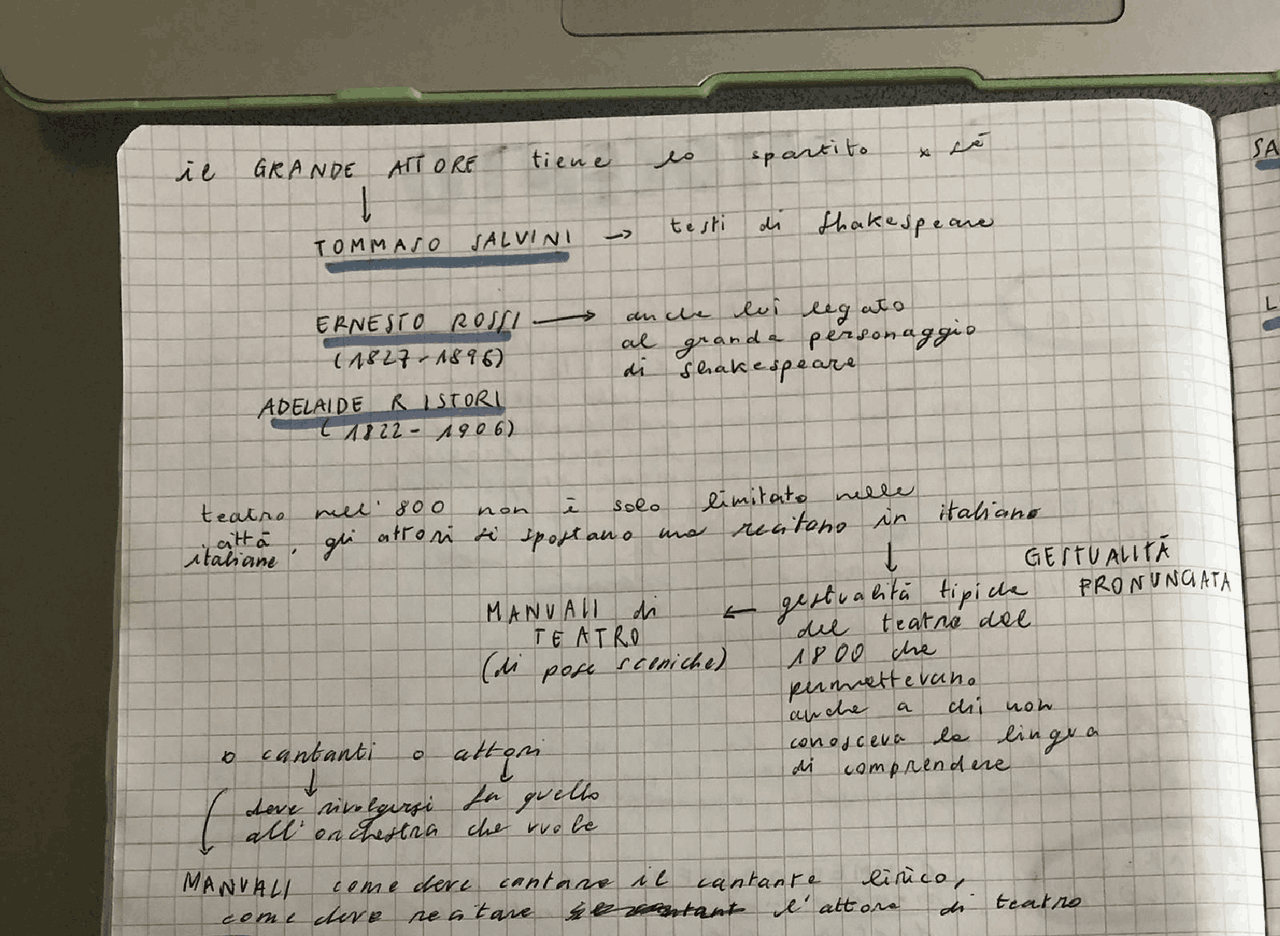 il GRANDE ATTORE tiene lo spartito x sé
↓
TOMMASO SALVINI → testi di Shakespeare
ERNESTO ROSSI → anche lui legato
(1827-1896) al granda personaggio
di Shakespeare
ADELAIDE RISTORI
(1822-1906)
teatro nell'800 non è solo limitato nelle
città
italiane, gli attori si spostano ma recitano in italiano
↓
GESTUALITÀ
PRONUNCIATA
MANUALI di ← gestualità tipiche
TEATRO del teatro del
(di pose sceniche) 1800 che
permettevano
anche a chi non
conosceva la lingua
di comprendere
o cantanti o attori
↓ ↓
deve rivolgersi fa quello
all'orchestra che vuole
↓
MANUALI come deve cantare il cantante lirico,
come deve recitare l'attore di teatro
SA
L